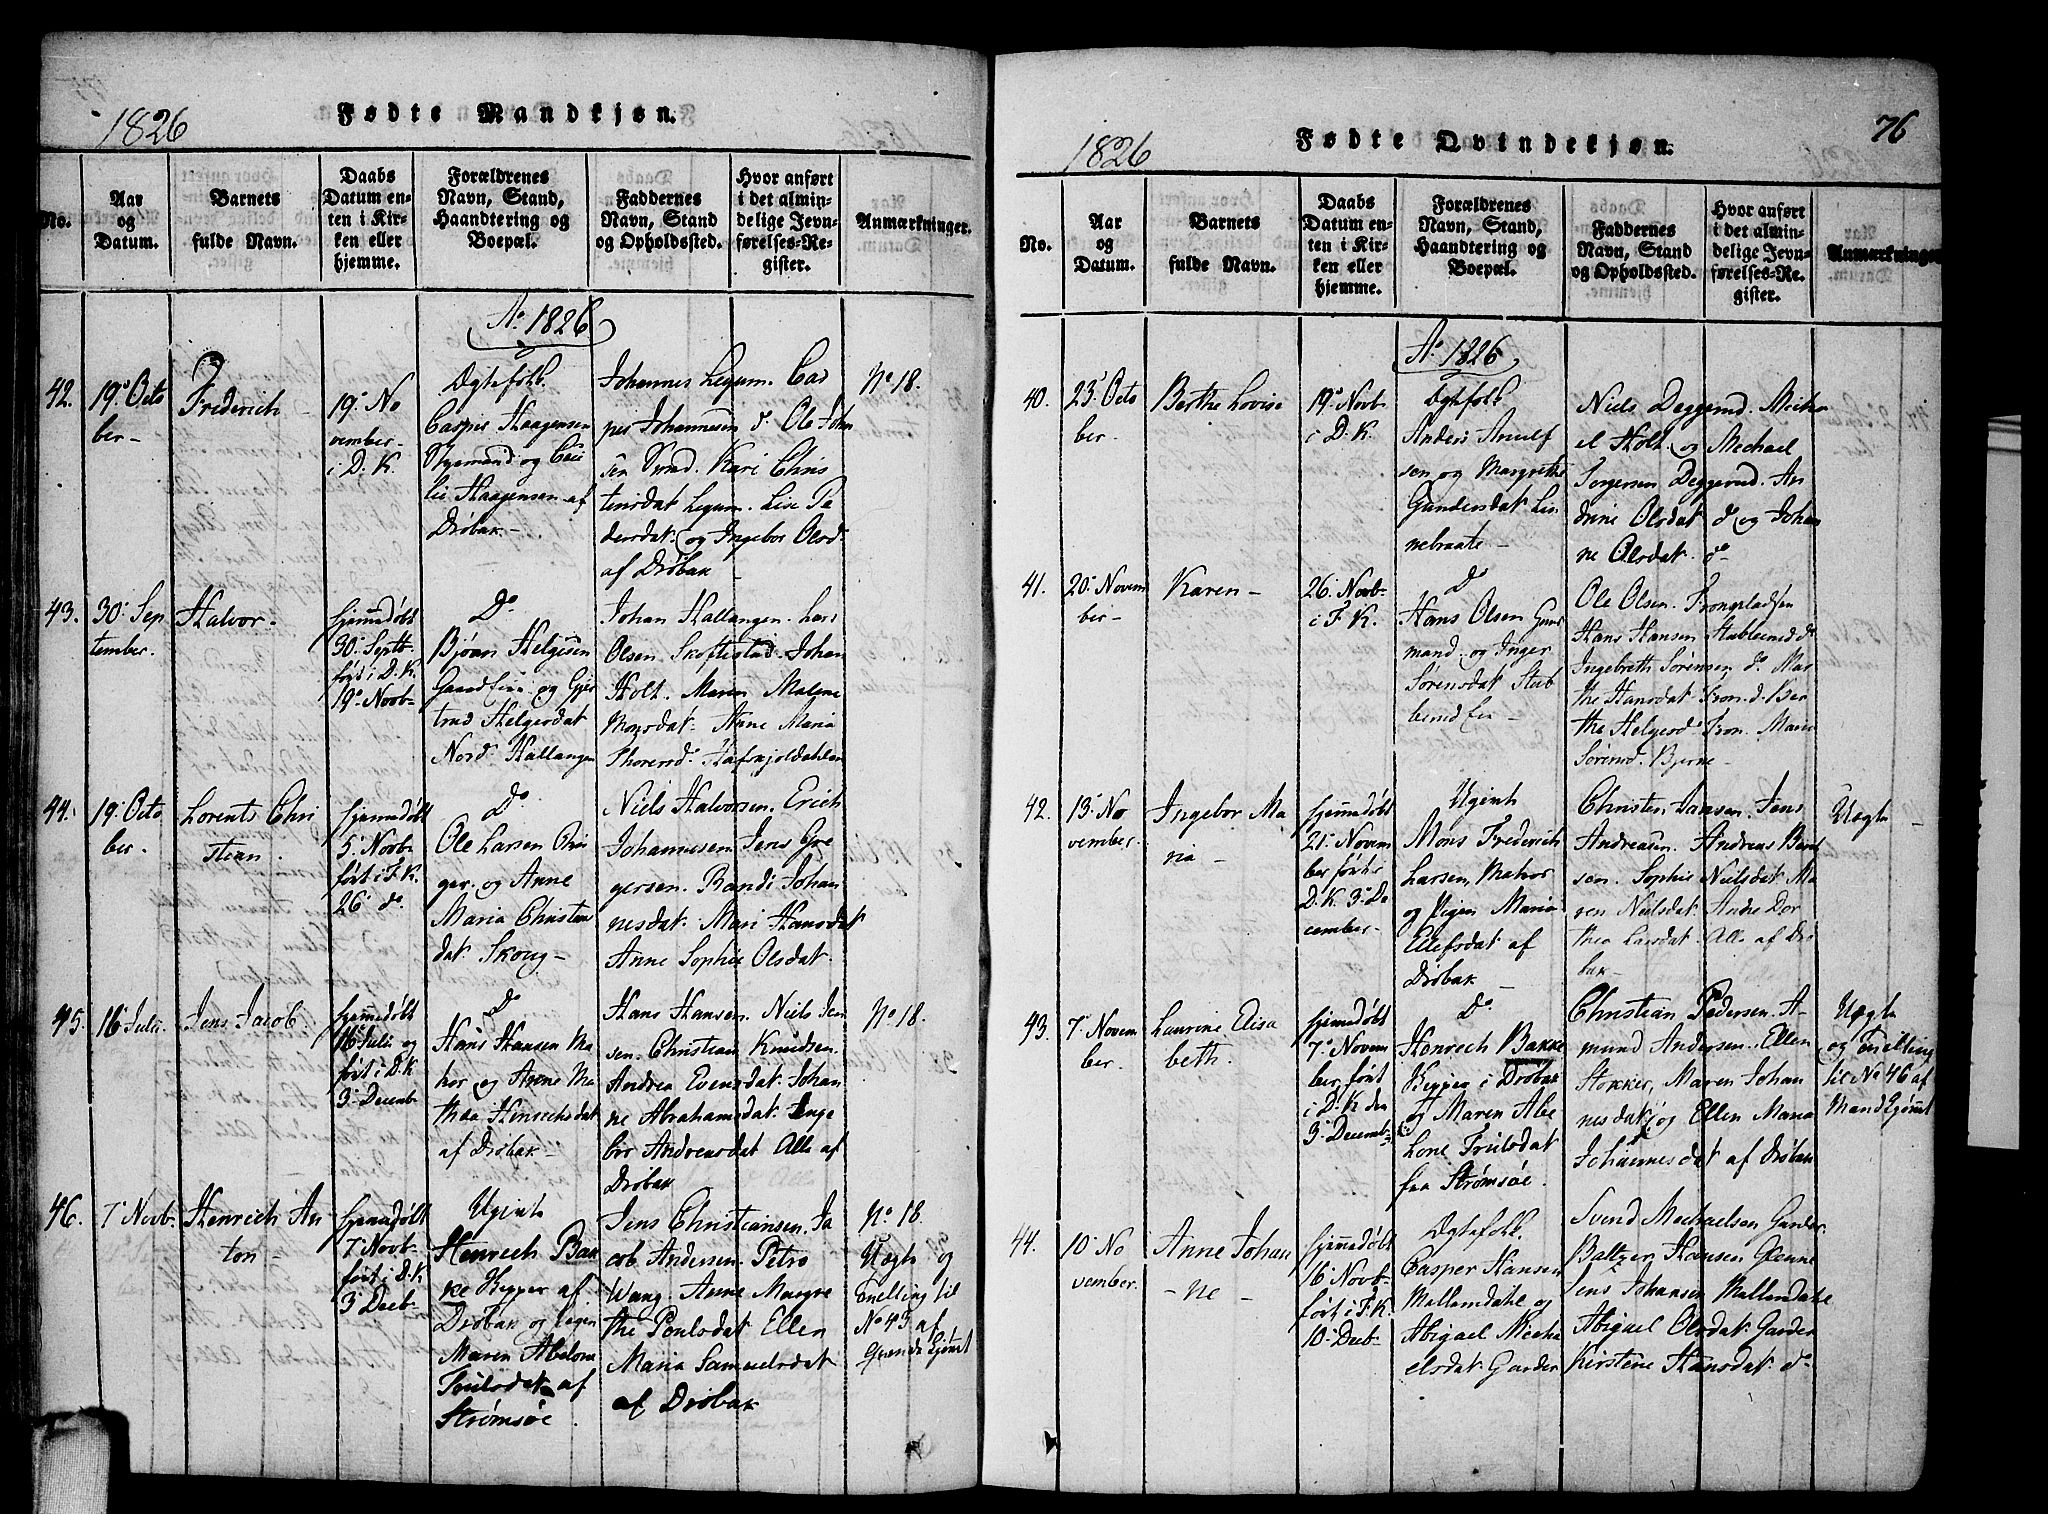 1826
Fødte Mandkjøn.
No.
Aar og Datum.
Barnets fulde Navn.
Daabs Datum enten i Kirken eller hjemme.
Forældrenes Navn, Stand, Haandtering og Boepæl.
Faddernes Navn, Stand og Opholdssted.
Hvor anført i det almindelige Jevnførelses-Register.
Anmærkninger.
Ao. 1826
42.
19de Octo
ber -
Friderich -
19de No
vember -
i D. K.
Ægtefolk
Casper Haagensen
og
Haagensen af
Drøbak -
Johannes Legum. Cas
per Johannesen do. Ole Johan
sen Kari Chris
tensdat Legum. Lise Pe
dersdat. og Ingebor Olsd.
af Drøbak -
No. 18.
43.
30. Sep
tember.
Halvor -
hjemmedøbt
30. Septb
ført i D. K.
19de Novb -
Do
Bjørn Helgesen
og Gjer
trud Helgesdat
Nord. Hallangen
Johan Hallangen. Lars
Olsen. Skoftestad. Johan
Holt. Maren Malene
Monsdat. Anne Maria
Thoresd.
44.
19. Octo
ber.
Lorents Chri
stian.
hjemmedøbt
5. Novb
ført i F. K.
26. do.
Do
Ole Larsen
og Anne
Maria Christen
dat. Skoug -
Niels Halvorsen. Erich
Johannesen. Jens Gre
gersen. Randi Johan
nesdat. Mari Hansdat
Anne Sophie Olsdat.
45.
16 Juli.
Jens Jacob.
hjemmedøbt
16 Juli og
ført i D. K
3. Decemb
Do
Hans Hansen Ma
og Anne Ma
thea Henrichsdat
af Drøbak -
Hans Hansen. Niels Jen
sen. Christian Knudsen.
Andrea Evensdat. Johan
ne Abrahamsdat. Inge
bor Andreasdat Alle af
Drøbak
No. 18.
46.
7 Novb.
Henrich An
ton -
hjemmedøbt
7 Novb -
ført i D. K
3 Decb -
Ugivte
Henrich Bak
ke Skipper af
Drøbak og Pigen
Maren Abelone
Truilsdat af
Strømsøe.
Jens Christiansen. Ja
cob Andersen. Petro
Wang. Anne Margre
the Poulsdat Ellen
Maria Samuelsdat
af Drøbak
No. 18.
Uægte og
Tvilling til
No 43 af
Qvindekjønnet
76
1826
Fødte Qvindekjøn.
No.
Aar og Datum.
Barnets fulde Navn.
Daabs Datum enten i Kirken eller hjemme.
Forældrenes Navn, Stand, Haandtering og Boepæl.
Faddernes Navn, Stand og Opholdssted.
Hvor anført i det almindelige Jevnførelses-Register.
Anmærkninger
Ao. 1826
40.
23. Octo
ber -
Berthe Lovise
19de Novb -
i D. K.
Ægtefolk
Anders Arnulf
sen og Margrethe
Gundersdat Lin
nebraate -
Niels Deggerud. Micha
el Holt. og Michael
Torgersen Deggerud. An
drine Olsdat do. og Johan
ne Olsdat. do
41.
20. Novem
ber -
Karen -
26. Novb -
i F. K.
Do
Hans Olsen
mand. og Inger
Sørensdat Stub
berud
Ole Olsen.
Hans Hansen do
Ingebreth Sørensen. do. Mar
the Hansdat
the Helgesd. Maria
Sørensd. Bjerne -
42.
13. No
vember.
Ingebor Ma
ria -
hjemmedøbt
21. Novem
ber ført i
D. K. 3. De
cember -
Ugivte
Mons Frederich
Larsen, Matros
og Pigen Maria
Elefsdat af
Drøbak -
Christen Jansen. Jens
Andreasen. Andreas Bent
sen. Sophie Nielsdat. Ma
ren Nielsdat. Andre Dor
thea Larsdat. Alle af Drø
bak -
Uægte -
43.
7. Novem
ber.
Laurine Elisa
beth.
hjemmedøbt
7. Novem
ber, ført
i D. K den
3. Decemb -
Do
Henrich Bakke
Skipper i Drøbak
og Maren Abe
lone Truilsdat
fra Strømsøe.
Christian Pedersen. A
mund Andersen. Ellen
Stokker, Maren Johan
nesdat og Ellen Maria
Johannesdat af Drøbak
Uægte
og Tvilling
til No 46 af
Mandkjønnet
44.
10. No
vember.
Anne Johan
- ne -
hjemmedøbt
16 Novb -
ført i F. K.
10. Decb -
Ægtefolk.
Casper Hansen
og
Abigael Micha
elsdat. Garder
Svend Michaelsen Garder.
Baltzer Hansen Glenne
Jens Johansen
Abigael Olsdat. Garder
Kirstene Hansdat. do